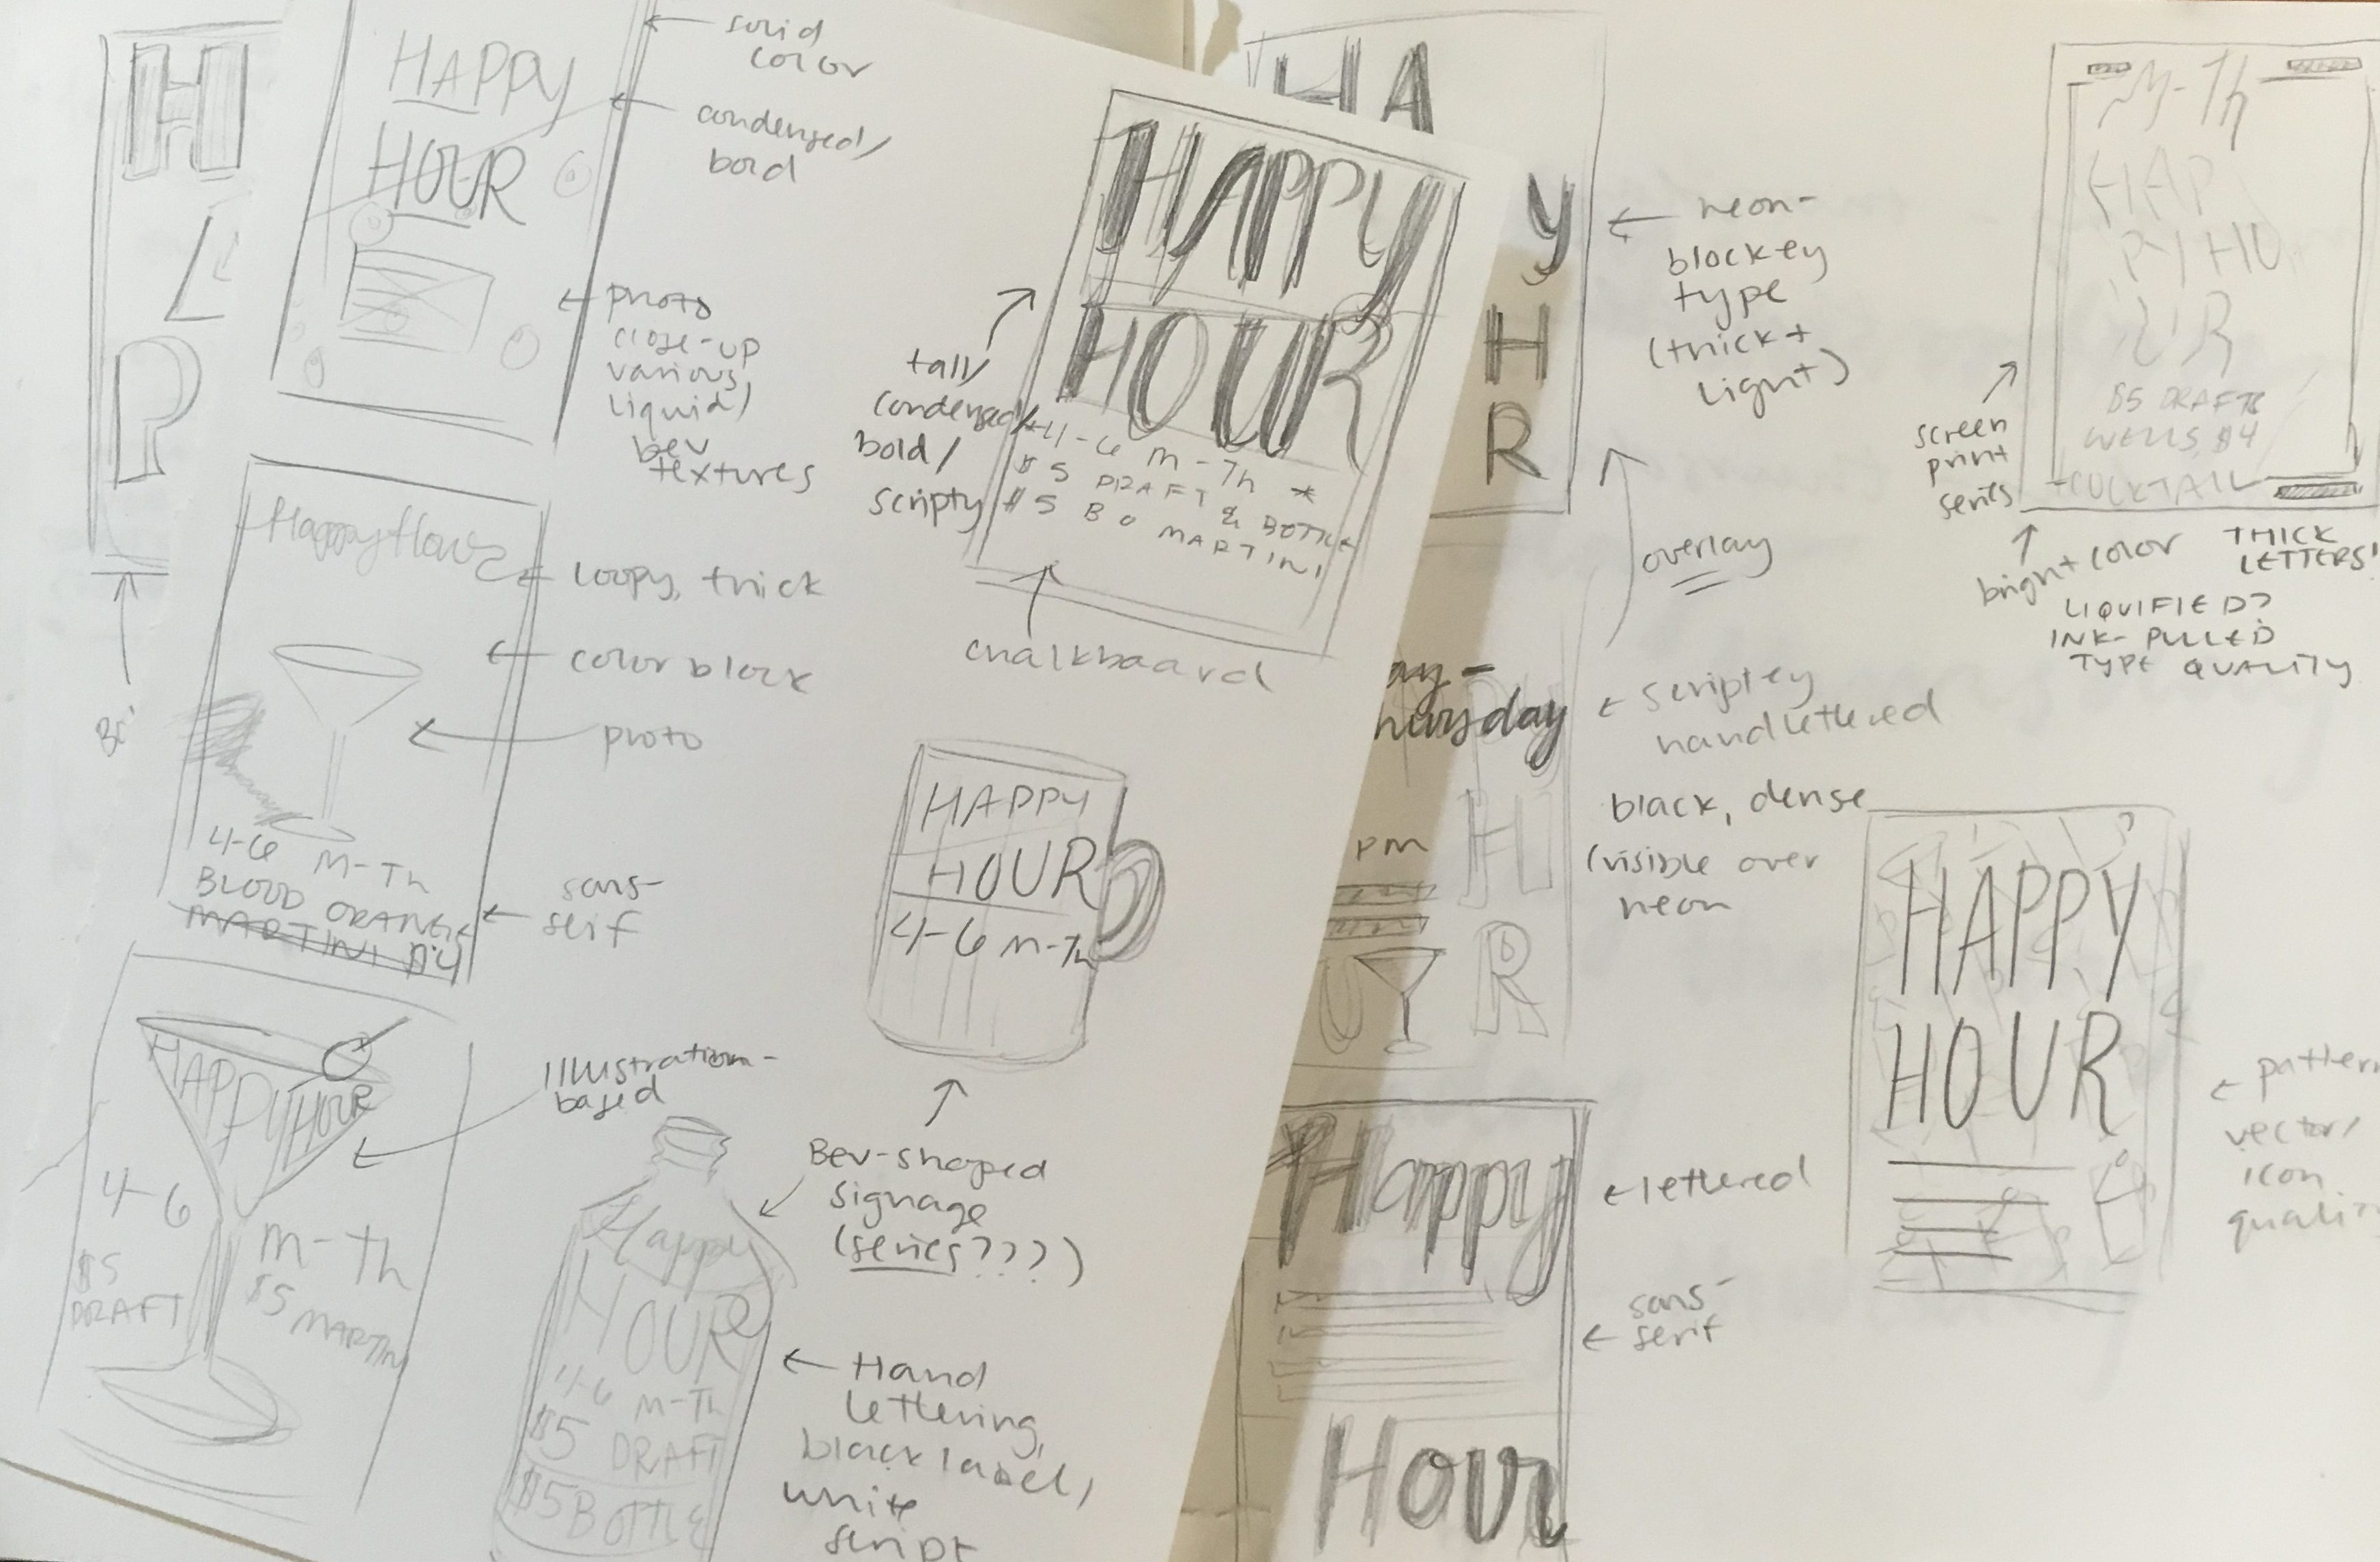 H
P
HAPPY
HOUR
solid
color
condensed/
bold
photo
close-up
various
liquid/
bev
textures
Happy Hour
loopy, thick
color block
photo
4-6 M-Th
BLOOD ORANGE
MARTINI
sans-
serif
HAPPY HOUR
4-6
M-Th
$5
DRAFT
$5
MARTINI
Illustration-
based
HAPPY
HOUR
4-6 M-Th *
$5 DRAFT & BOTTLE
$5 BO MARTINI
tall/
condensed/
bold/
scripty
chalkboard
HAPPY
HOUR
4-6 M-Th
Bev-shaped
signage
(series???)
Happy
HOUR
4-6 M-Th
$5 DRAFT
$5 BOTTLE
Hand
lettering,
black label,
white
script
HA
y
H
R
neon-
blockey
type
(thick +
light)
overlay
ay-
hursday
PM
H
R
scriptey
handlettered
black, dense
(visible over
neon
Happy
Hour
lettered
sans-
serif
M-Th
HAP
PY HO
UR
$5 DRAFTS
WELLS $4
COCKTAIL
screen
print
series
bright color
THICK
LETTERS!
LIQUIFIED?
INK-PULLED
TYPE QUALITY
HAPPY
HOUR
pattern
vector/
icon
quali